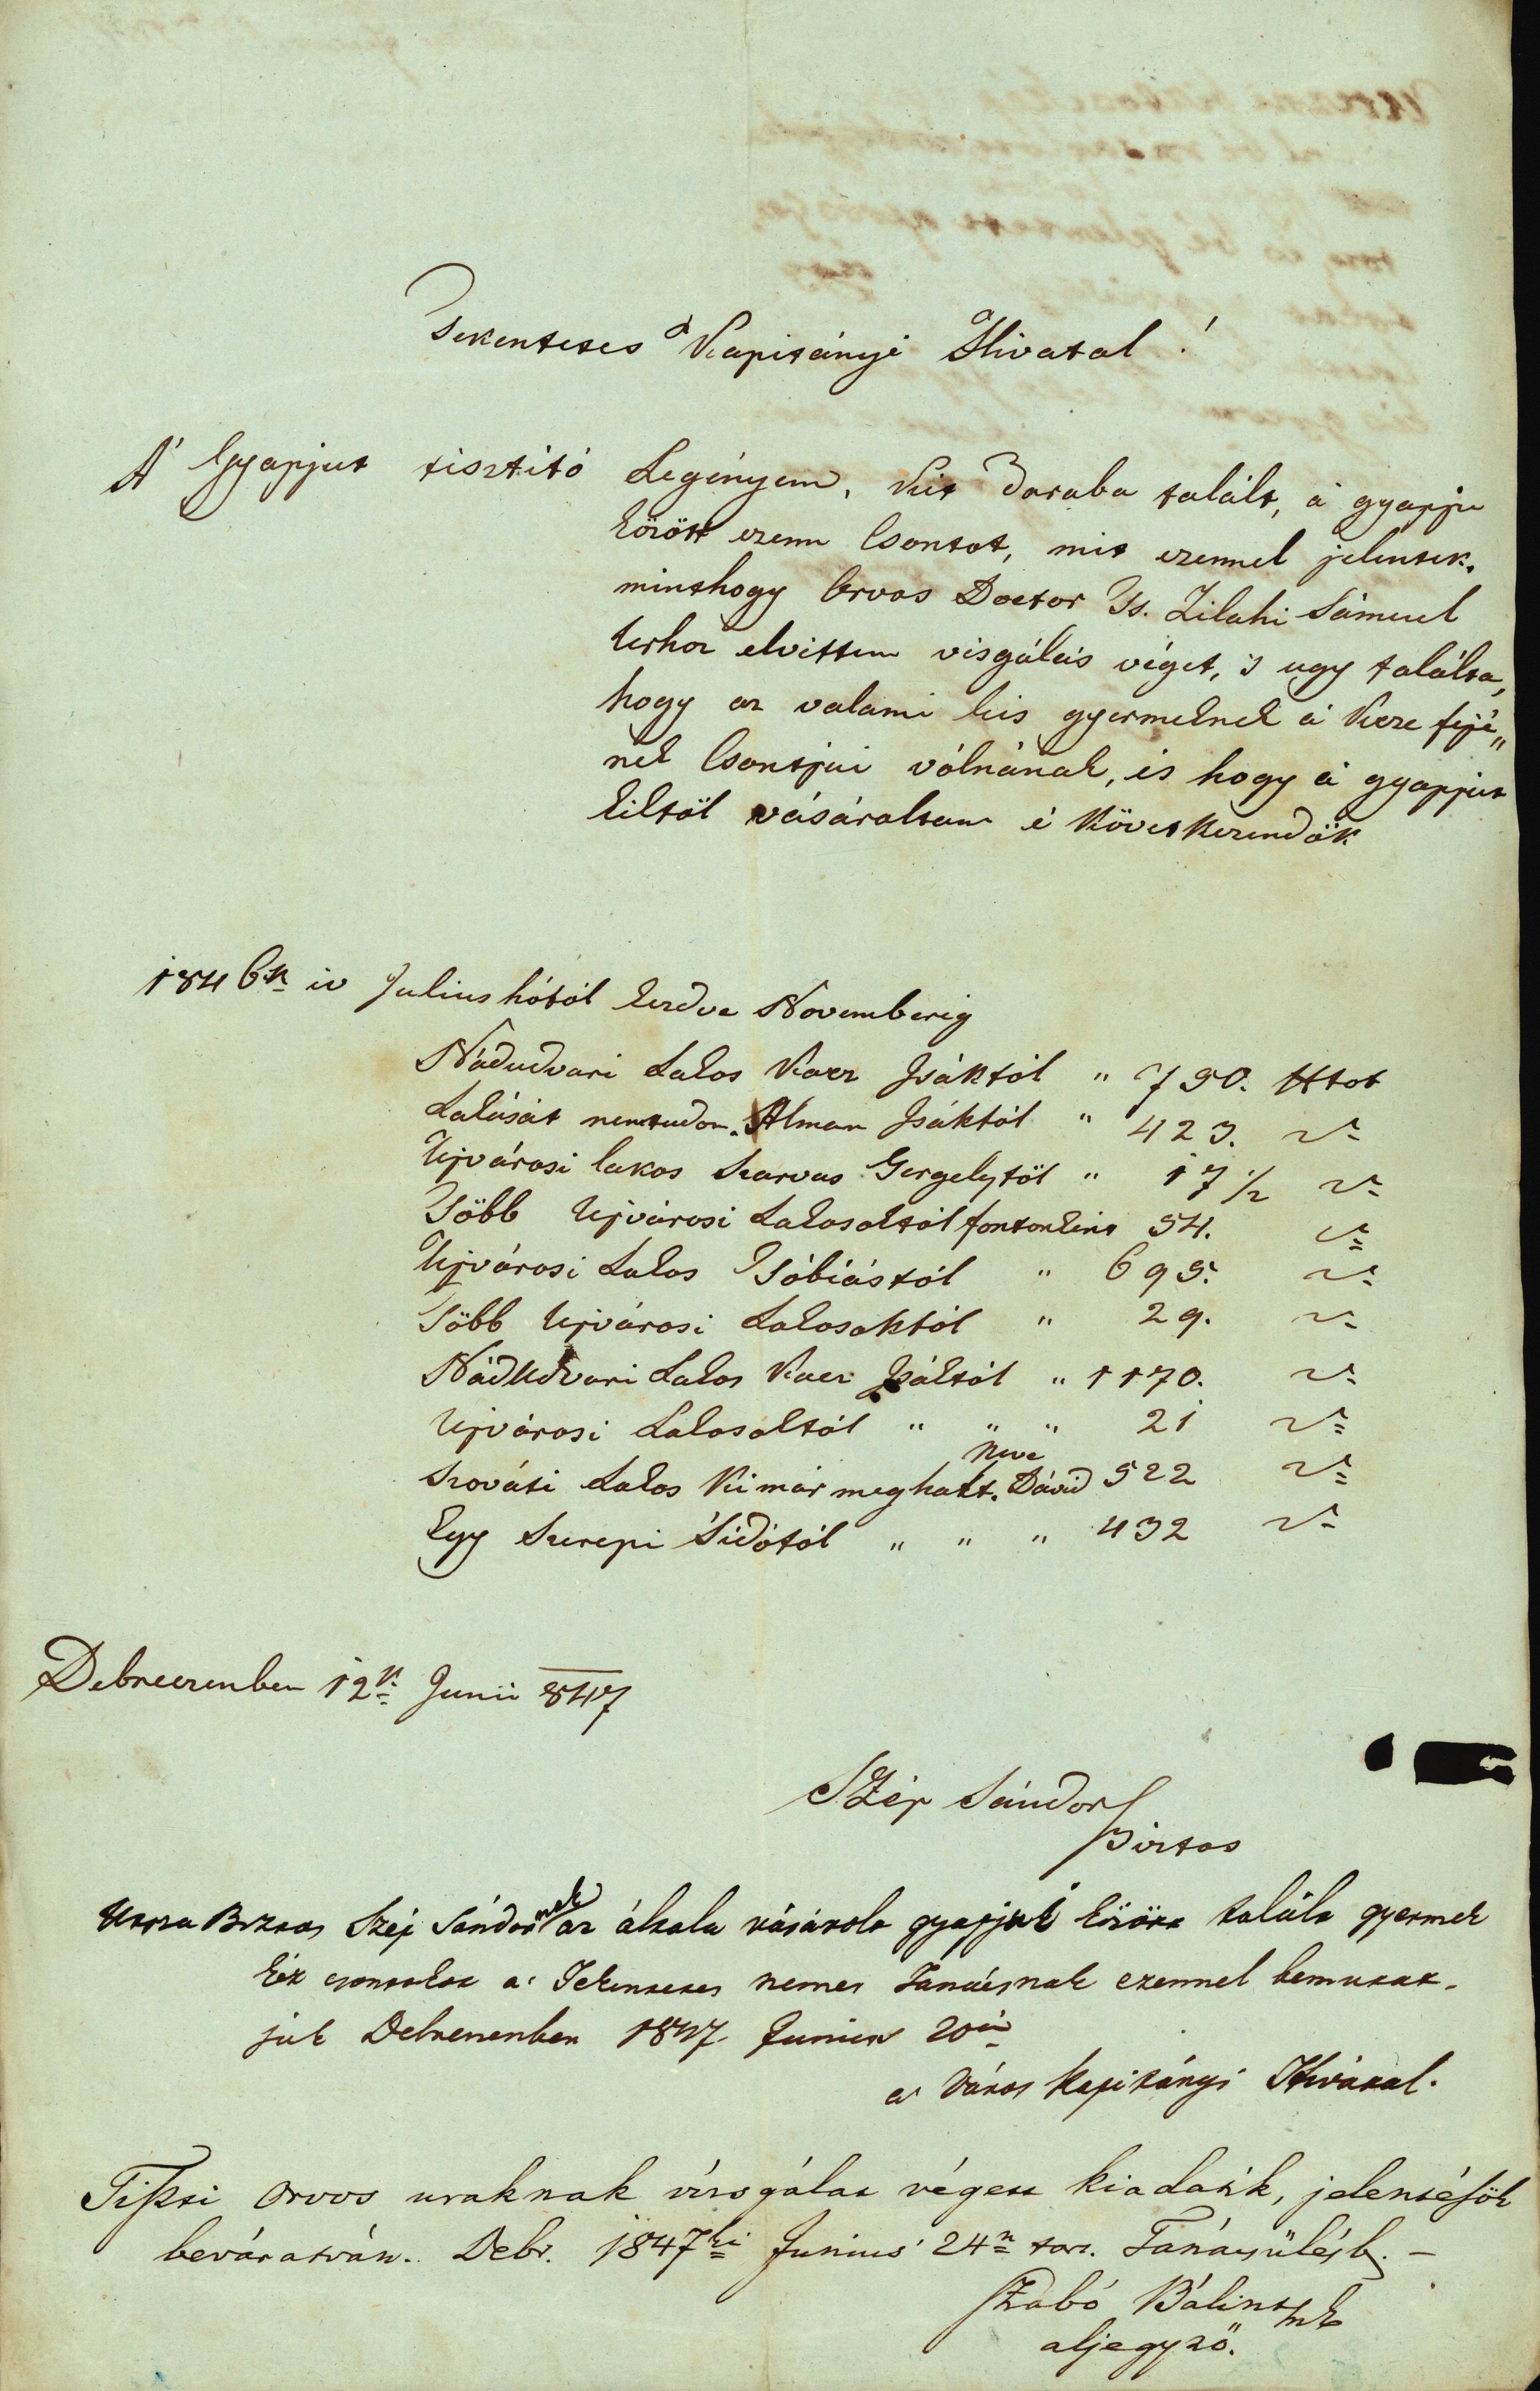 Tekentetes Kapitányi Hivatal!
A' Gyapjut tisztító Legényem, Két Daraba talált, á gyapju
között ezenn Csontot, mit ezennel jelentek.
minthogy Orvos Doctor Ts. Zilahi Sámuel
Urhoz elvittem visgálás véget, 's ugy találta,
hogy az valami kis gyermeknek á Keze fejé„
nek Csontjai vólnának, és hogy á gyapjut
kiktöl vásároltam é Következendök
1846k év Julius hótól kezdve Novemberig
Nádudvari Lakos Isáktól " 790. ttot
Lakását nemtudom. Alman Isáktól " 423. "
Ujvárosi lakos Szarvas Gergelytöl " 17 1/2 "
Több Ujvárosi Lakosoktól fontonként 54. "
Ujvárosi Lakos Tóbiástól " 695. "
Több Ujvárosi Lakosoktól " 29. "
Nádudvari Lakos Isáktól " 1170. "
Ujvárosi Lakosoktól " " " 21 "
Szováti Lakos Ki már meghalt. Neve Dávid 522 "
Egy Szerepi Sidótól " " " 432 "
Debreczenben 12k Junii 847
Szép Sándor
Birtos
Szép Sándornak az általa vásárolt gyapjuk között talált gyermek
kéz csontokat a' Tekentetes nemes Tanácsnak ezennel bemutat-
juk Debreczenben 1847. Junius 20án
a' Város Kapitányi Hivatal.
Tiszti Orvos uraknak visgálat végett kiadatik, jelentésök
beváratván. Debr. 1847ki Junius 24n tar. Tanácsülésb. –
Szabó Bálint mk
aljegyző.